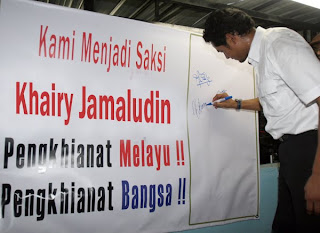 Kami Menjadi Saksi
Khairy Jamaludin
Pengkhianat Melayu !!
Pengkhianat Bangsa !!